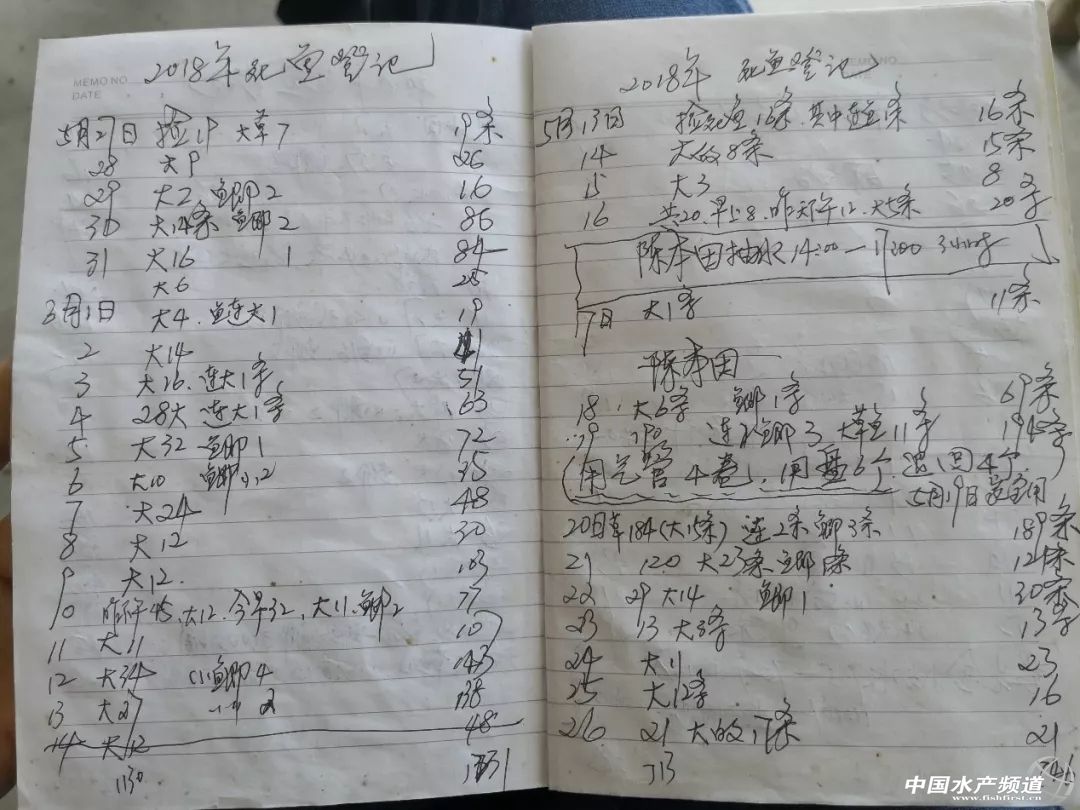 MEMO NO
DATE
2018年死鱼登记
5月27日 捡19 大草7 19条
28 大9 26
29 大2 鲫2 16
30 大14条 鲫2 86
31 大16 1 84
大6 25
6月1日 大4.鲢大1 19
2 大14 41
3 大16.连大1条 51
4 28大 连大1条 63
5 大32 鲫1 72
6 大10 鲫 2 35
7 大24 48
8 大12 30
9 大12. 103
10 昨下午45,大12.今早32,大11.鲫2 77
11 大11 107
12 大34 鲫4 143
13 大27 2 138
14 大12 48
1130
2018年 死鱼登记
MEMO NO
5月13日 捡死鱼16条.其中 16条
14 大的8条 15条
15 大3 8
16 共20.早上8.昨天下午12.大5条 20条
陈本田抽水14:00—17:00 3小时
17日 大1条 11条
陈本田
18 大6条 鲫1条 69条
19 190 连 鲫3 大草鱼11条 194条
(用气管4卷,用盘6个 退回4个)
5月19日
20日草184(大15条) 连2条鲫3条 189条
21 120 大23条鲫1条 121条
22 29 大14 鲫1 30条
23 13 大3条 13条
24 大11 23
25 大12条 16
26 21 大的 条 21
713
中国水产频道
www.fishfirst.cn